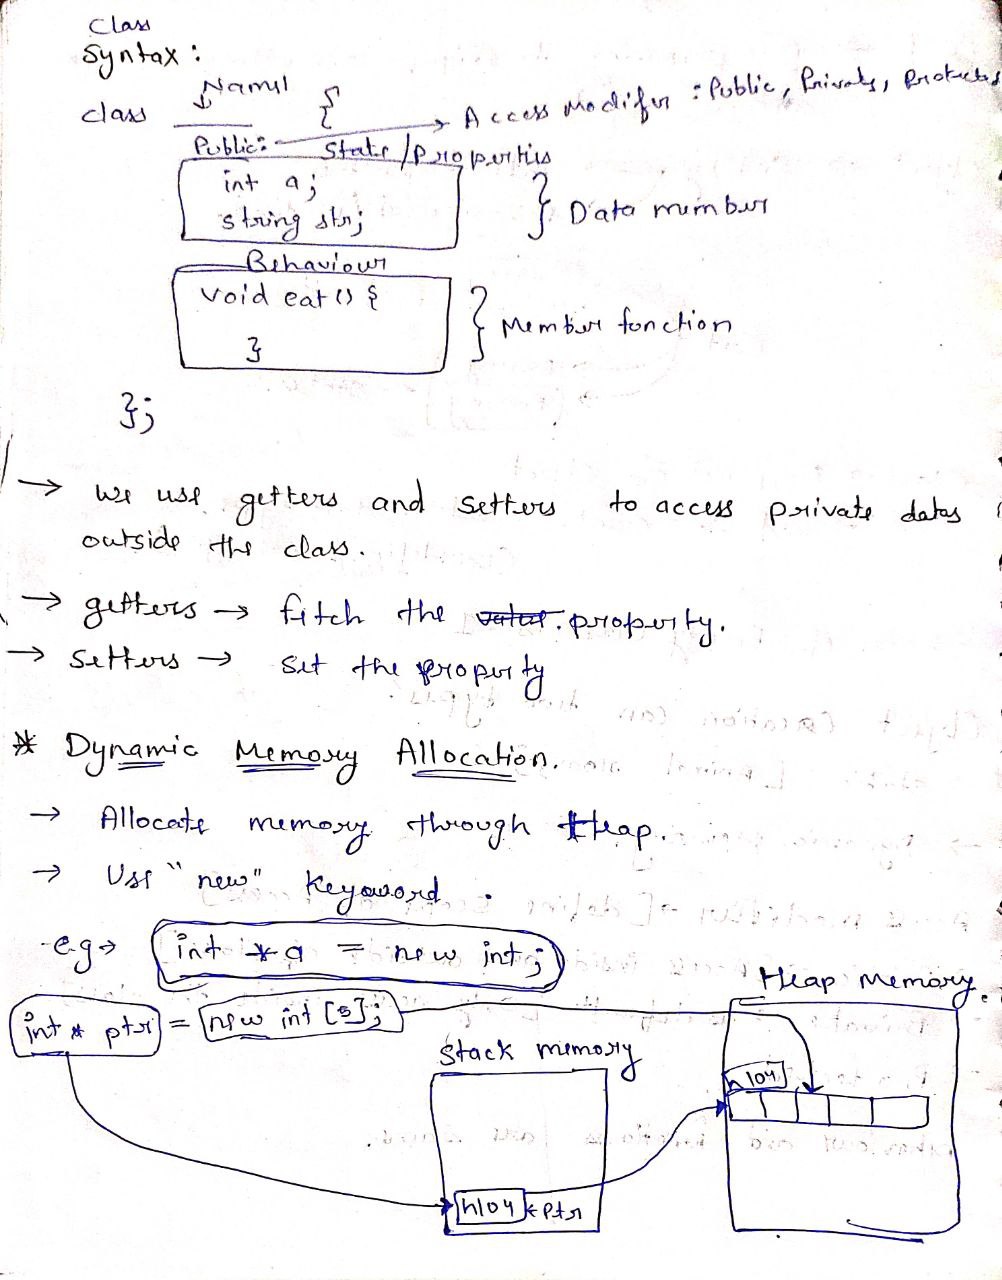 Class
Syntax :
Name
class {
Public: → Access Modifier : Public, Private, Protected
State / Properties
int a;
string str; } Data member
Behaviour
void eat () {
} } Member function
};
→ We use getters and setters to access private datas
outside the class.
→ getters → fetch the property.
→ Setters → Set the property
* Dynamic Memory Allocation.
→ Allocate memory through Heap.
→ Use "new" Keyword.
e.g → int *a = new int;
int * ptr = new int [5];
Heap Memory.
Stack memory
h104
h104 ← Ptr